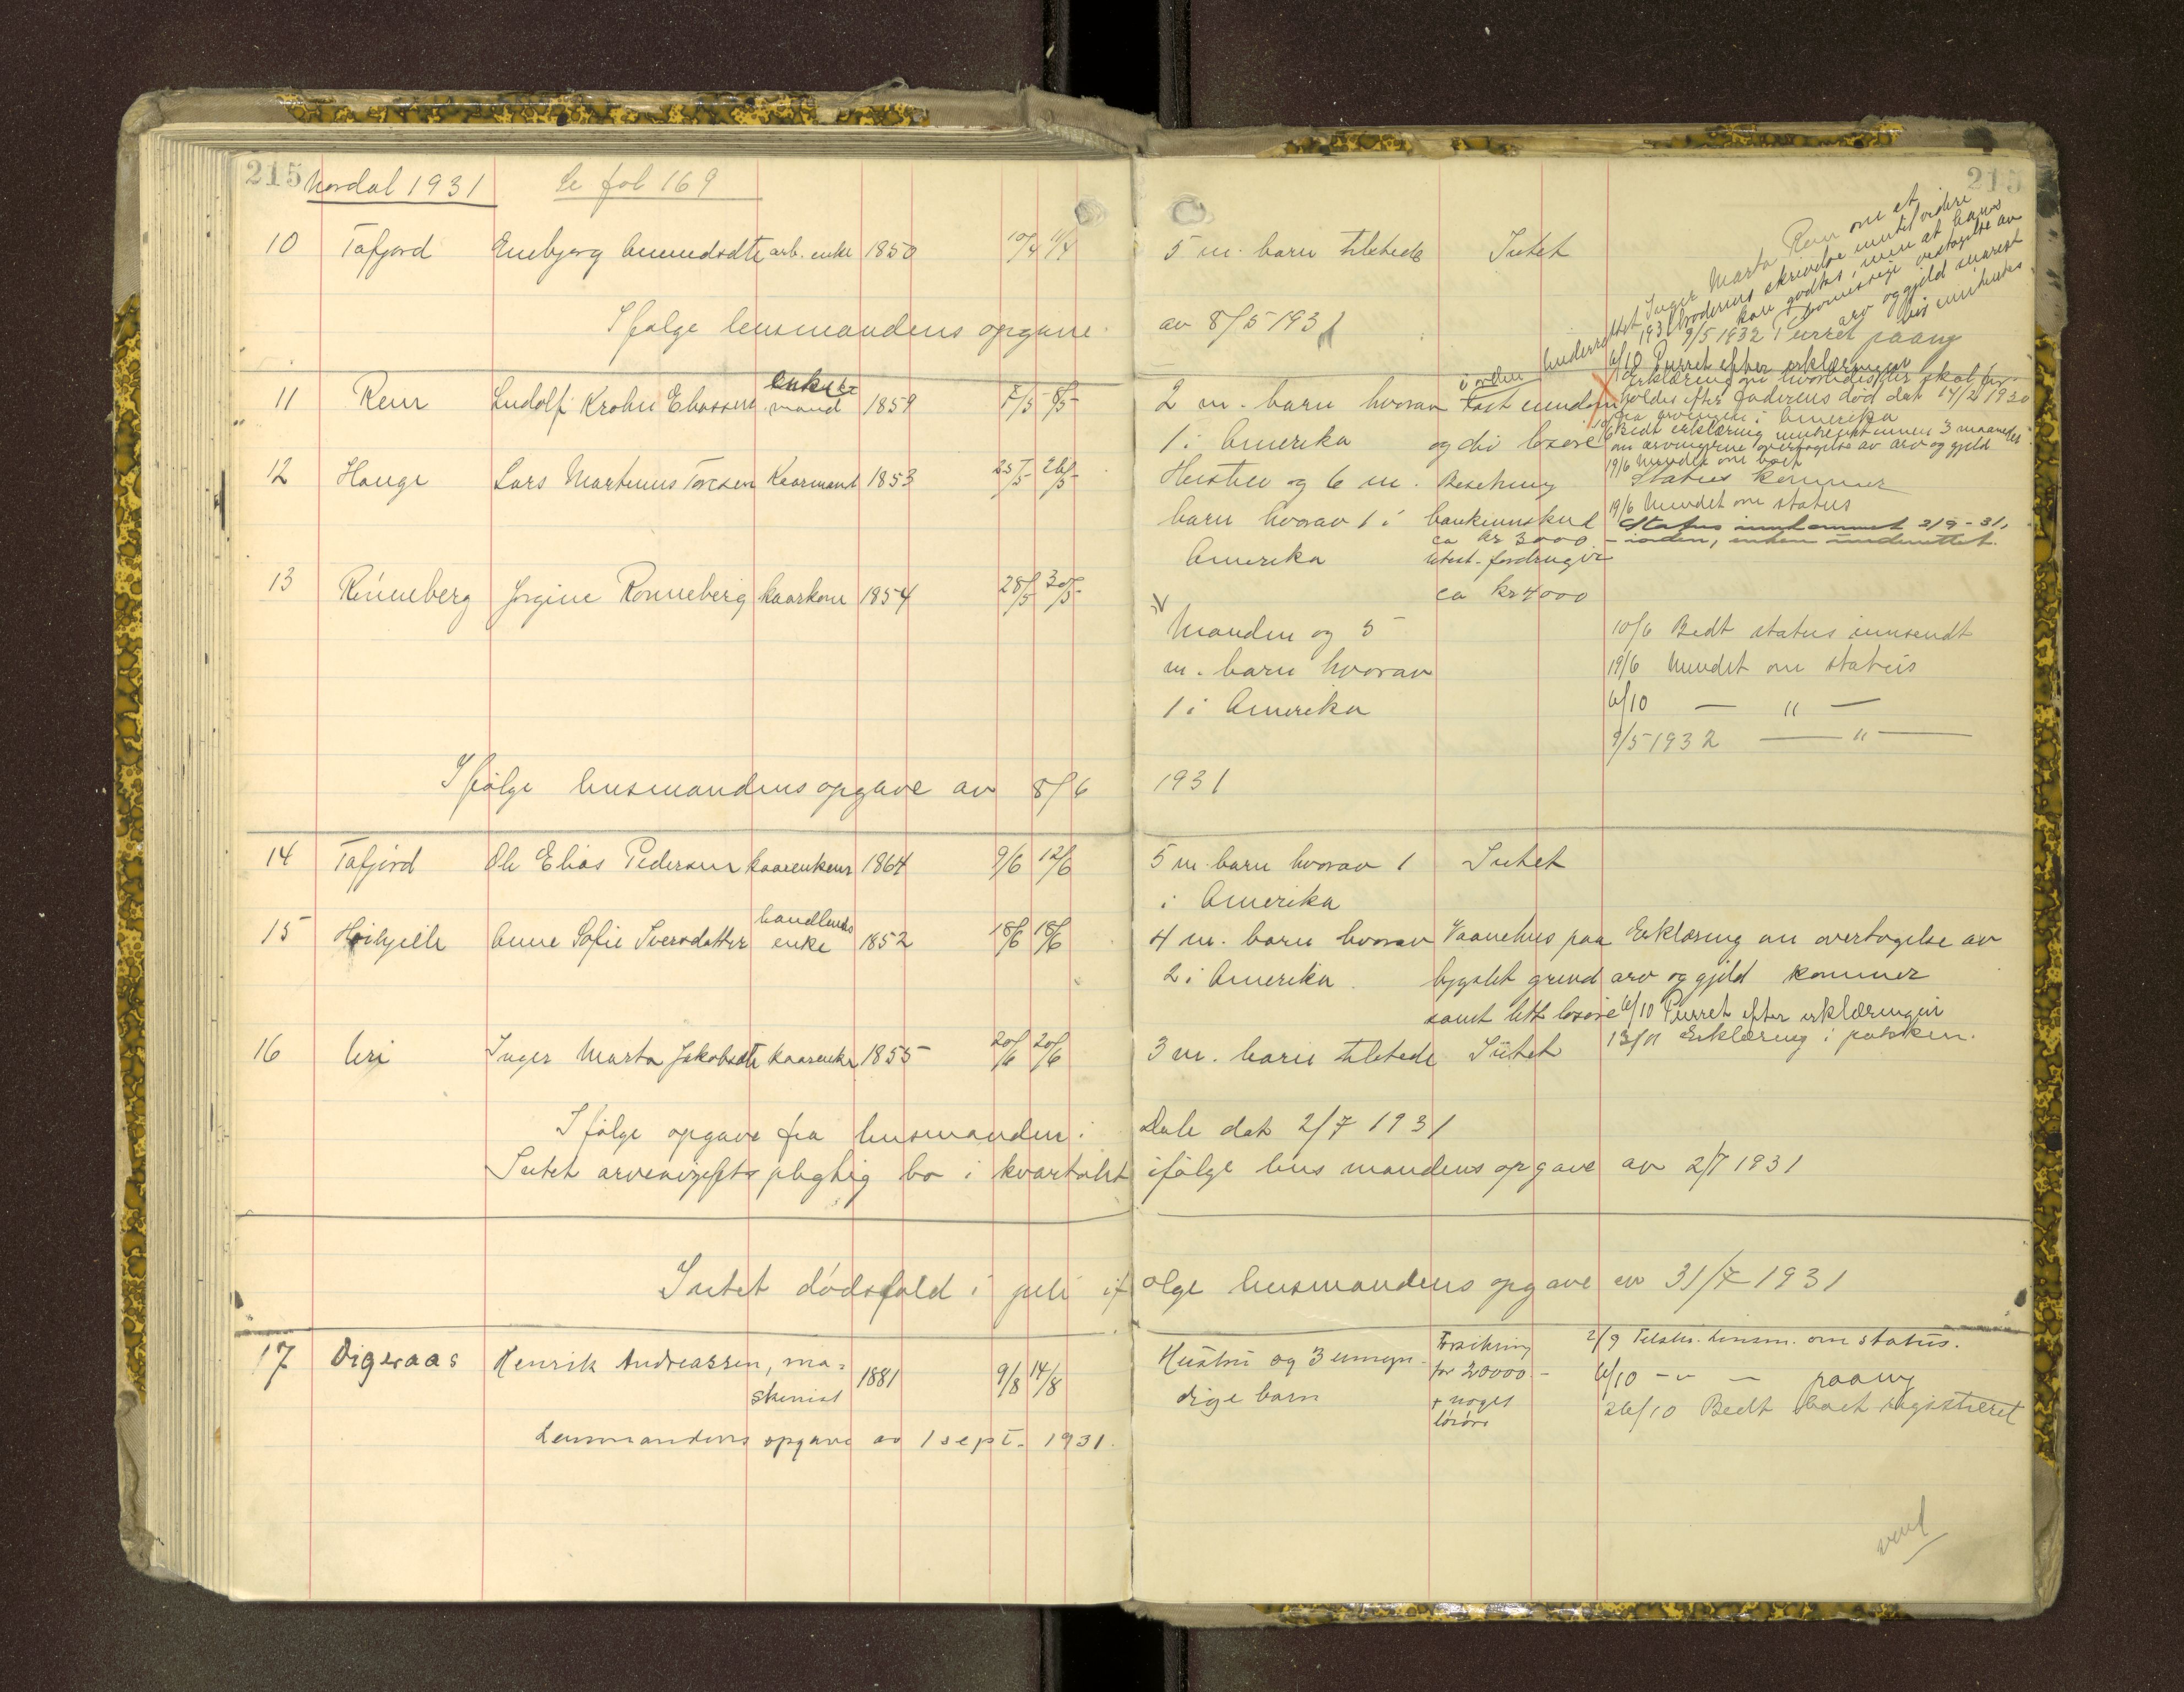 215 Nordal 1931 Se fol 169 215
10 Tafjord Enebjørg Amundsdtr arb. enke 1850 10/4 11/4 5 m. barn tilstede Intet
Ifølge lensmandens opgave av 8/5 1931
Underrettet Inger Marta Rem om at
broderens skrivelse inntet videre
1931 kan godtas, men at hans
arv og gjeld snarest
9/5 1932 Purret paany
6/10 Purret efter erklæringen
11 Rem Ludolf Krohn Eliassen enke-mand 1859 7/5 8/5 2 m. barn hvorav i orden fast eiendom
Erklæring om hvorledes der skal for-
holdes efter faderens død dat 14/2 1930
fra arvingen i Amerika
1 i Amerika og div løsøre
Bedt erklæring innen 3 maaneder
om arvingernes overtagelse av arv og gjeld
12 Hauge Lars Martinus Toresen Kaarmand 1853 25/5 26/5 Hustru og 6 m. Besetning
19/6 Mindet om boet
Status kommer
barn hvorav 1 i bankinnskud
19/6 Mindet om status
ca kr 3000
Status innkommet 2/9-31,
- iorden, enken underrettet.
Amerika utest. fordringer
ca kr 4000
13 Rønneberg Jørgine Rønneberg kaarkone 1854 28/5 30/5
Manden og 5 10/6 Bedt status innsendt
m. barn hvorav 19/6 Mindet om status
1 i Amerika 6/10 — " —
9/5 1932 — " —
Ifølge lensmandens opgave av 8/6 1931
14 Tafjord Ole Elias Pedersen kaarenkem 1864 9/6 12/6 5 m. barn hvorav 1 Intet
i Amerika
15 Høihjelle Anne Sofie Sversdatter handlende enke 1852 18/6 18/6 4 m. barn hvorav Vaanehus paa Erklæring om overtagelse av
2 i Amerika bygslet grund arv og gjeld kommer
samt litt løsøre 6/10 Purret efter erklæringen
16 Uri Inger Marta Jakobsdtr kaarenke 1855 20/6 20/6 3 m. barn tilstede Intet 13/11 Erklæring i pakken.
Ifølge opgave fra lensmanden i Dale dat 2/7 1931
Intet arveavgiftspligtig bo i kvartalet ifølge lensmandens opgave av 2/7 1931
Intet dødsfald i juli ifølge lensmandens opgave av 31/7 1931
17 Digeraas Henrik Andreassen, ma- 1881 9/8 14/8 Hustru og 3 umyn- Forsikring 2/9 Tilskr. lensm. om status.
skinist dige barn for 20000.- 6/10 - " - paany
+ noget løsøre 26/10 Bedt boet registreret
Lensmandens opgave av 1 sept. 1931.
vend